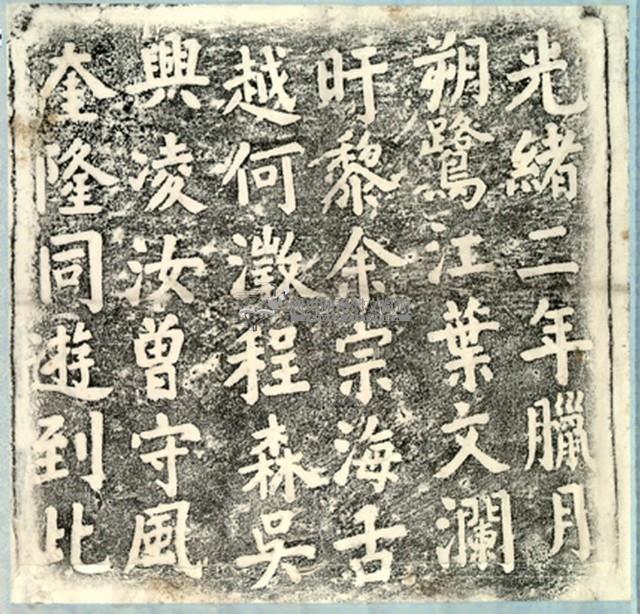 光緒二年臘月
朔鷺江葉文瀾
盱黎余宗海古
越何澂程森吳
興凌汝曾守風
奎隆同遊到此